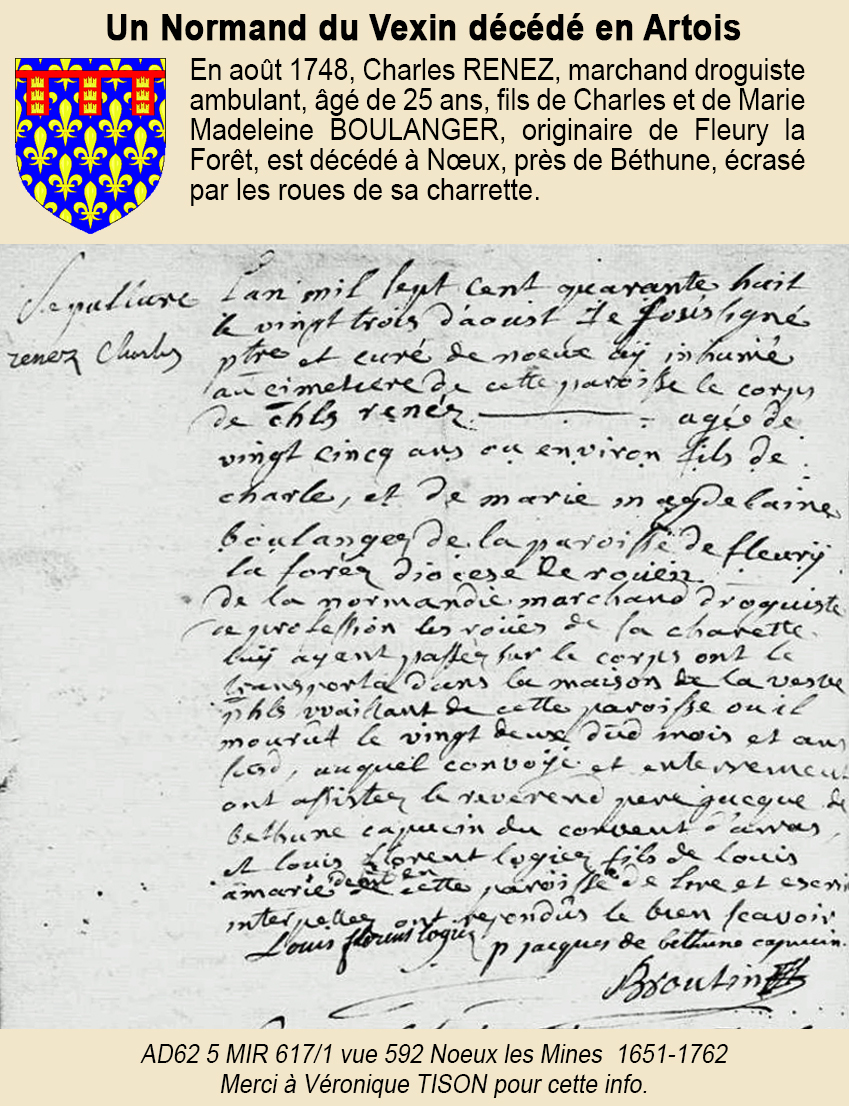 Un Normand du Vexin décédé en Artois
En août 1748, Charles RENEZ, marchand droguiste
ambulant, âgé de 25 ans, fils de Charles et de Marie
Madeleine BOULANGER, originaire de Fleury la
Forêt, est décédé à Nœux, près de Béthune, écrasé
par les roues de sa charrette.
Sepulture
renez Charles
Lan mil sept cent quarante huit
le vingt trois d'aoust Je sousigné
ptre et curé de noeux aÿ inhumé
au cimetiere de cette paroisse le corps
de chls renéz agée de
vingt cincq ans ou environ fils de
charle, et de marie magdelaine
boulangez de la paroisse de fleurÿ
la foréz diocese de roüen
de la normandie marchand droguiste
de profession les roües de sa charette
luÿ ayant passéz sur le corps ont le
transporta dans la maison de la vesve
phls vvaillant de cette paroisse ou il
mourût le vingt deux dud mois et ans
susd, auquel convoÿé et enterrement
ont assistez le reverend pere jacque de
bethune capucin du convent d'arras,
et louis florent logiez fils de louis
a marié de cette paroisse de lire et escrir
interpellez ont repondûs le bien scavoir
Louis florent logiez p jacques de bethune capucin
Broutin
AD62 5 MIR 617/1 vue 592 Noeux les Mines 1651-1762
Merci à Véronique TISON pour cette info.